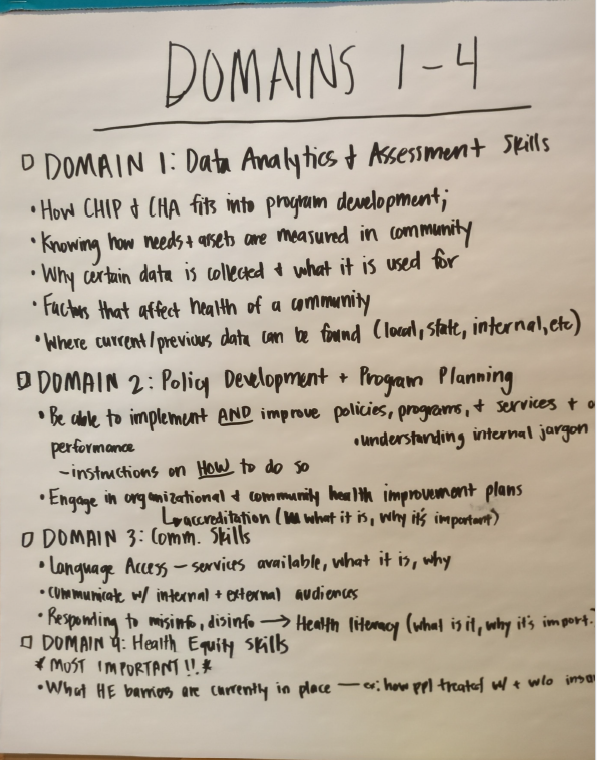 DOMAINS 1-4
DOMAIN 1: Data Analytics + Assessment Skills
• How CHIP + CHA fits into program development;
• Knowing how needs + assets are measured in community
• Why certain data is collected + what it is used for
• Factors that affect health of a community
• Where current/previous data can be found (local, state, internal, etc)
DOMAIN 2: Policy Development + Program Planning
• Be able to implement AND improve policies, programs, + services + o
performance
• understanding internal jargon
- instructions on HOW to do so
• Engage in organizational + community health improvement plans
↳ accreditation (what it is, why it's important)
DOMAIN 3: Comm. Skills
• Language Access - services available, what it is, why
• communicate w/ internal + external audiences
• Responding to misinfo, disinfo → Health literacy (what is it, why it's import.
DOMAIN 4: Health Equity Skills
* MOST IMPORTANT!! *
• What HE barriers are currently in place — ex: how ppl treated w/ + w/o insu